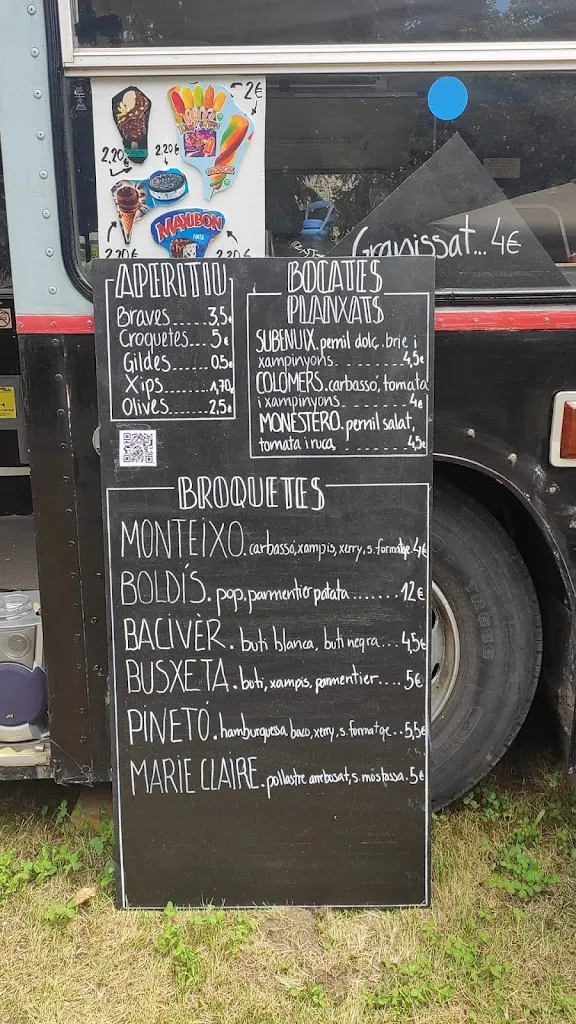 2€
2,20€
2,20€
MAXIBON
NATA
2,20€
2,20€
Granissat...4€
APERITIU
Braves......3,5€
Croquetes...5€
Gildes......0,5€
Xips........1,70€
Olives......2,5€
BOCATES
PLANXATS
SUBENUIX.pernil dolç, brie i
xampinyons..........4,5€
COLOMERS.carbassó, tomata
i xampinyons..........4€
MONESTERO.pernil salat,
tomata i ruca..........4,5€
BROQUETES
MONTEIXO.carbassó,xampis,xerry,s.formatge.4€
BOLDÍS.pop,parmentier patata.......12€
BACIVÈR.buti blanca, buti negra...4,5€
BUSXETA.buti, xampis, parmentier....5€
PINETÓ.hamburguesa,baco,xerry,s.formatge...5,5€
MARIE CLAIRE.pollastre arrebosat,s.mostassa.5€